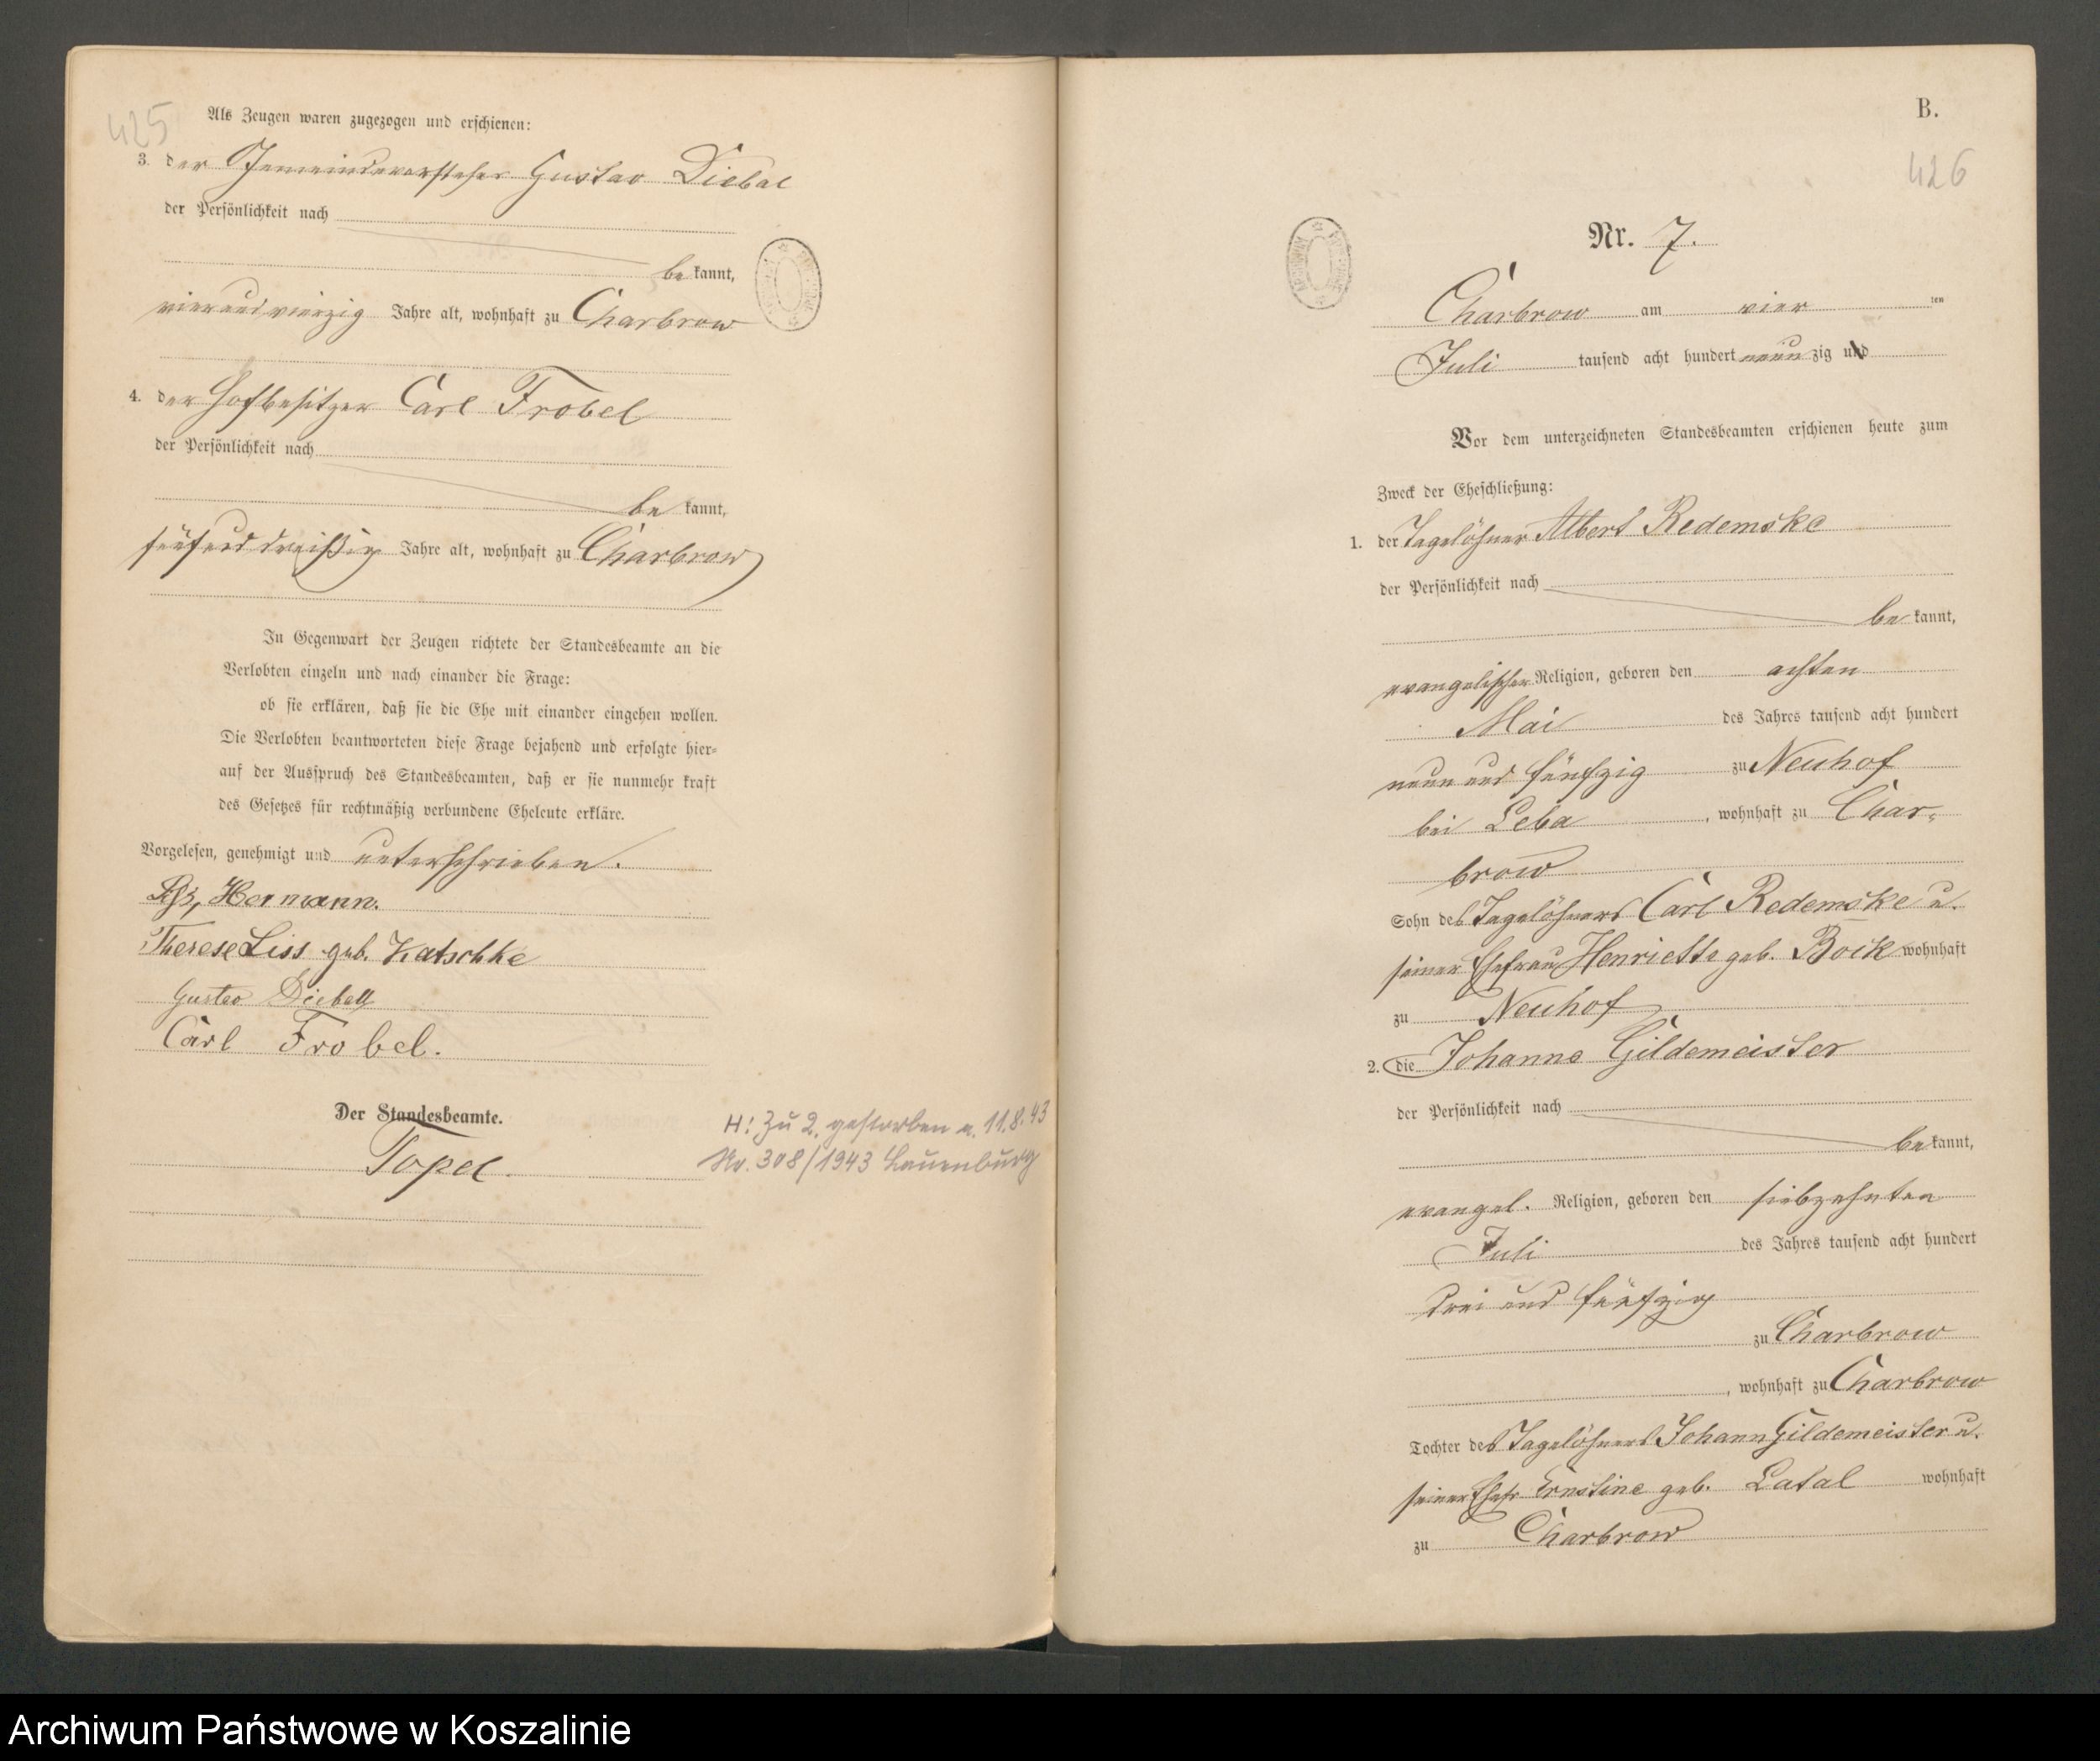 425
Als Zeugen waren zugezogen und erschienen:
3. der Gemeindevorsteher Gustav Diebal
der Persönlichkeit nach
be kannt,
vierundvierzig Jahre alt, wohnhaft zu Charbrow
4. der Hofbesitzer Carl Frobel
der Persönlichkeit nach
be kannt,
fünfunddreißig Jahre alt, wohnhaft zu Charbrow
In Gegenwart der Zeugen richtete der Standesbeamte an die
Verlobten einzeln und nach einander die Frage:
ob sie erklären, daß sie die Ehe mit einander eingehen wollen.
Die Verlobten beantworteten diese Frage bejahend und erfolgte hier-
auf der Ausspruch des Standesbeamten, daß er sie nunmehr kraft
des Gesetzes für rechtmäßig verbundene Eheleute erkläre.
Vorgelesen, genehmigt und unterschrieben.
Hermann.
Therese Liss geb. Katschke
Gustav
Carl Frobel.
Der Standesbeamte.
Topel.
H: Zu 2. gestorben a. 11.8.43
Nr. 308/1943 Lauenburg
B.
426
Nr. 7.
Charbrow am vier ten
Juli tausend acht hundert neun zig und
Vor dem unterzeichneten Standesbeamten erschienen heute zum
Zweck der Eheschließung:
1. der Tagelöhner Albert Redemske
der Persönlichkeit nach
be kannt,
evangelischer Religion, geboren den achten
Mai des Jahres tausend acht hundert
neun und fünfzig zu Neuhof
bei Leba, wohnhaft zu Char-
brow
Sohn des Tagelöhners Carl Redemske u.
seiner Ehefrau Henriette geb. Bock wohnhaft
zu Neuhof
2. die Johanne Gildemeister
der Persönlichkeit nach
be kannt,
evangel. Religion, geboren den siebzehnten
Juli des Jahres tausend acht hundert
drei und fünfzig
zu Charbrow
, wohnhaft zu Charbrow
Tochter des Tagelöhners Johann Gildemeister u.
seiner Ehefr Ernstine geb. Latal wohnhaft
zu Charbrow
Archiwum Państwowe w Koszalinie